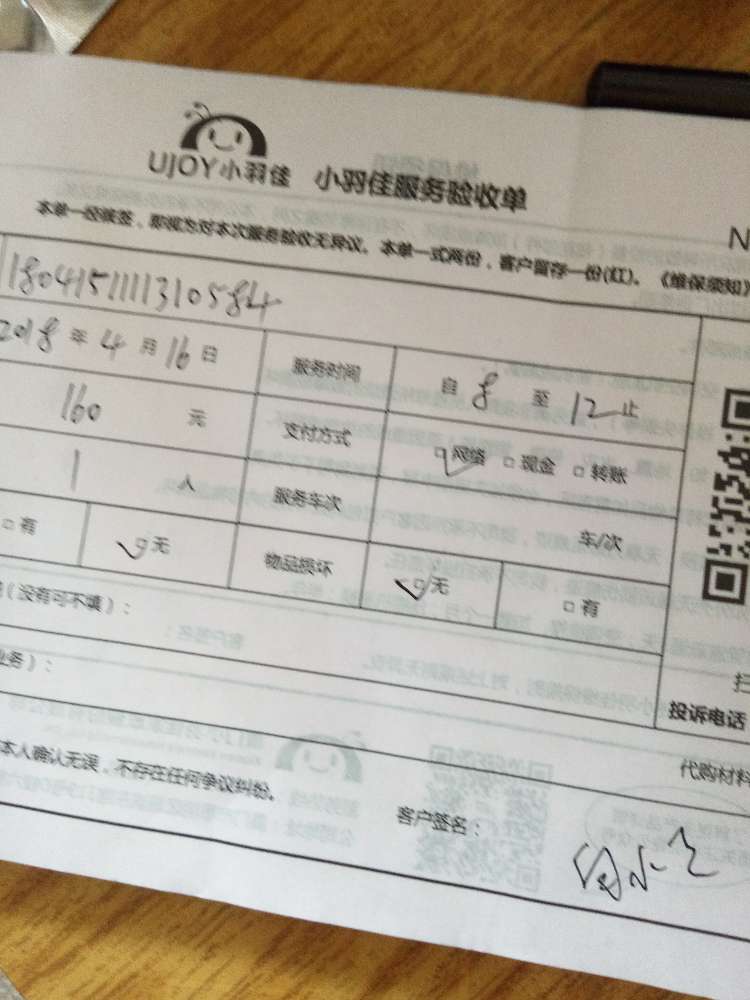 UJOY小羽佳 小羽佳服务验收单
本单一经被签，即视为对本次服务验收无异议。本单一式两份，客户留存一份(红)。《维保须知》
N
1804151111310584
2018年4月16日 服务时间 自8至12止
160 元 支付方式 □网络 □现金 □转账
1 人 服务车次 车/次
□有 □无 物品损坏 □无 □有
(没有可不填)：
业务)：
扫
投诉电话
代购材料
本人确认无误，不存在任何争议纠纷。
客户签名：